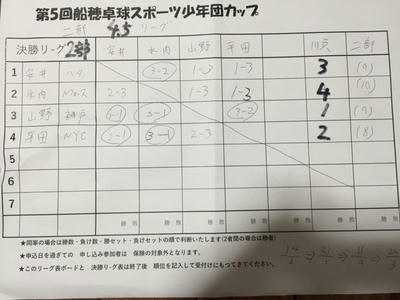 第5回船穂卓球スポーツ少年団カップ
二部 4.5 リーグ
決勝リーグ 2部 安井 木内 山野 平田 順 二部
1 安井 ハタ (3-2) 1-3 1-3 3 (9)
2 木内 2-3 1-3 1-3 4 (10)
3 山野 神戸 (3-1) (3-1) (3-2) 1 (7)
4 平田 NYC (3-1) (3-1) 2-3 2 (8)
5
6
7
勝 敗 勝 敗 勝 敗 勝 敗 勝 敗 勝 敗
★同率の場合は勝数・負け数・勝セット・負けセットの順で判断いたします(2者間の場合は勝者)
★申込日を過ぎての 申し込み参加者は 保険の対象外となります。
★このリーグ表ボードと 決勝リーグ表は終了後 順位を記入して受付けにもってきてください。